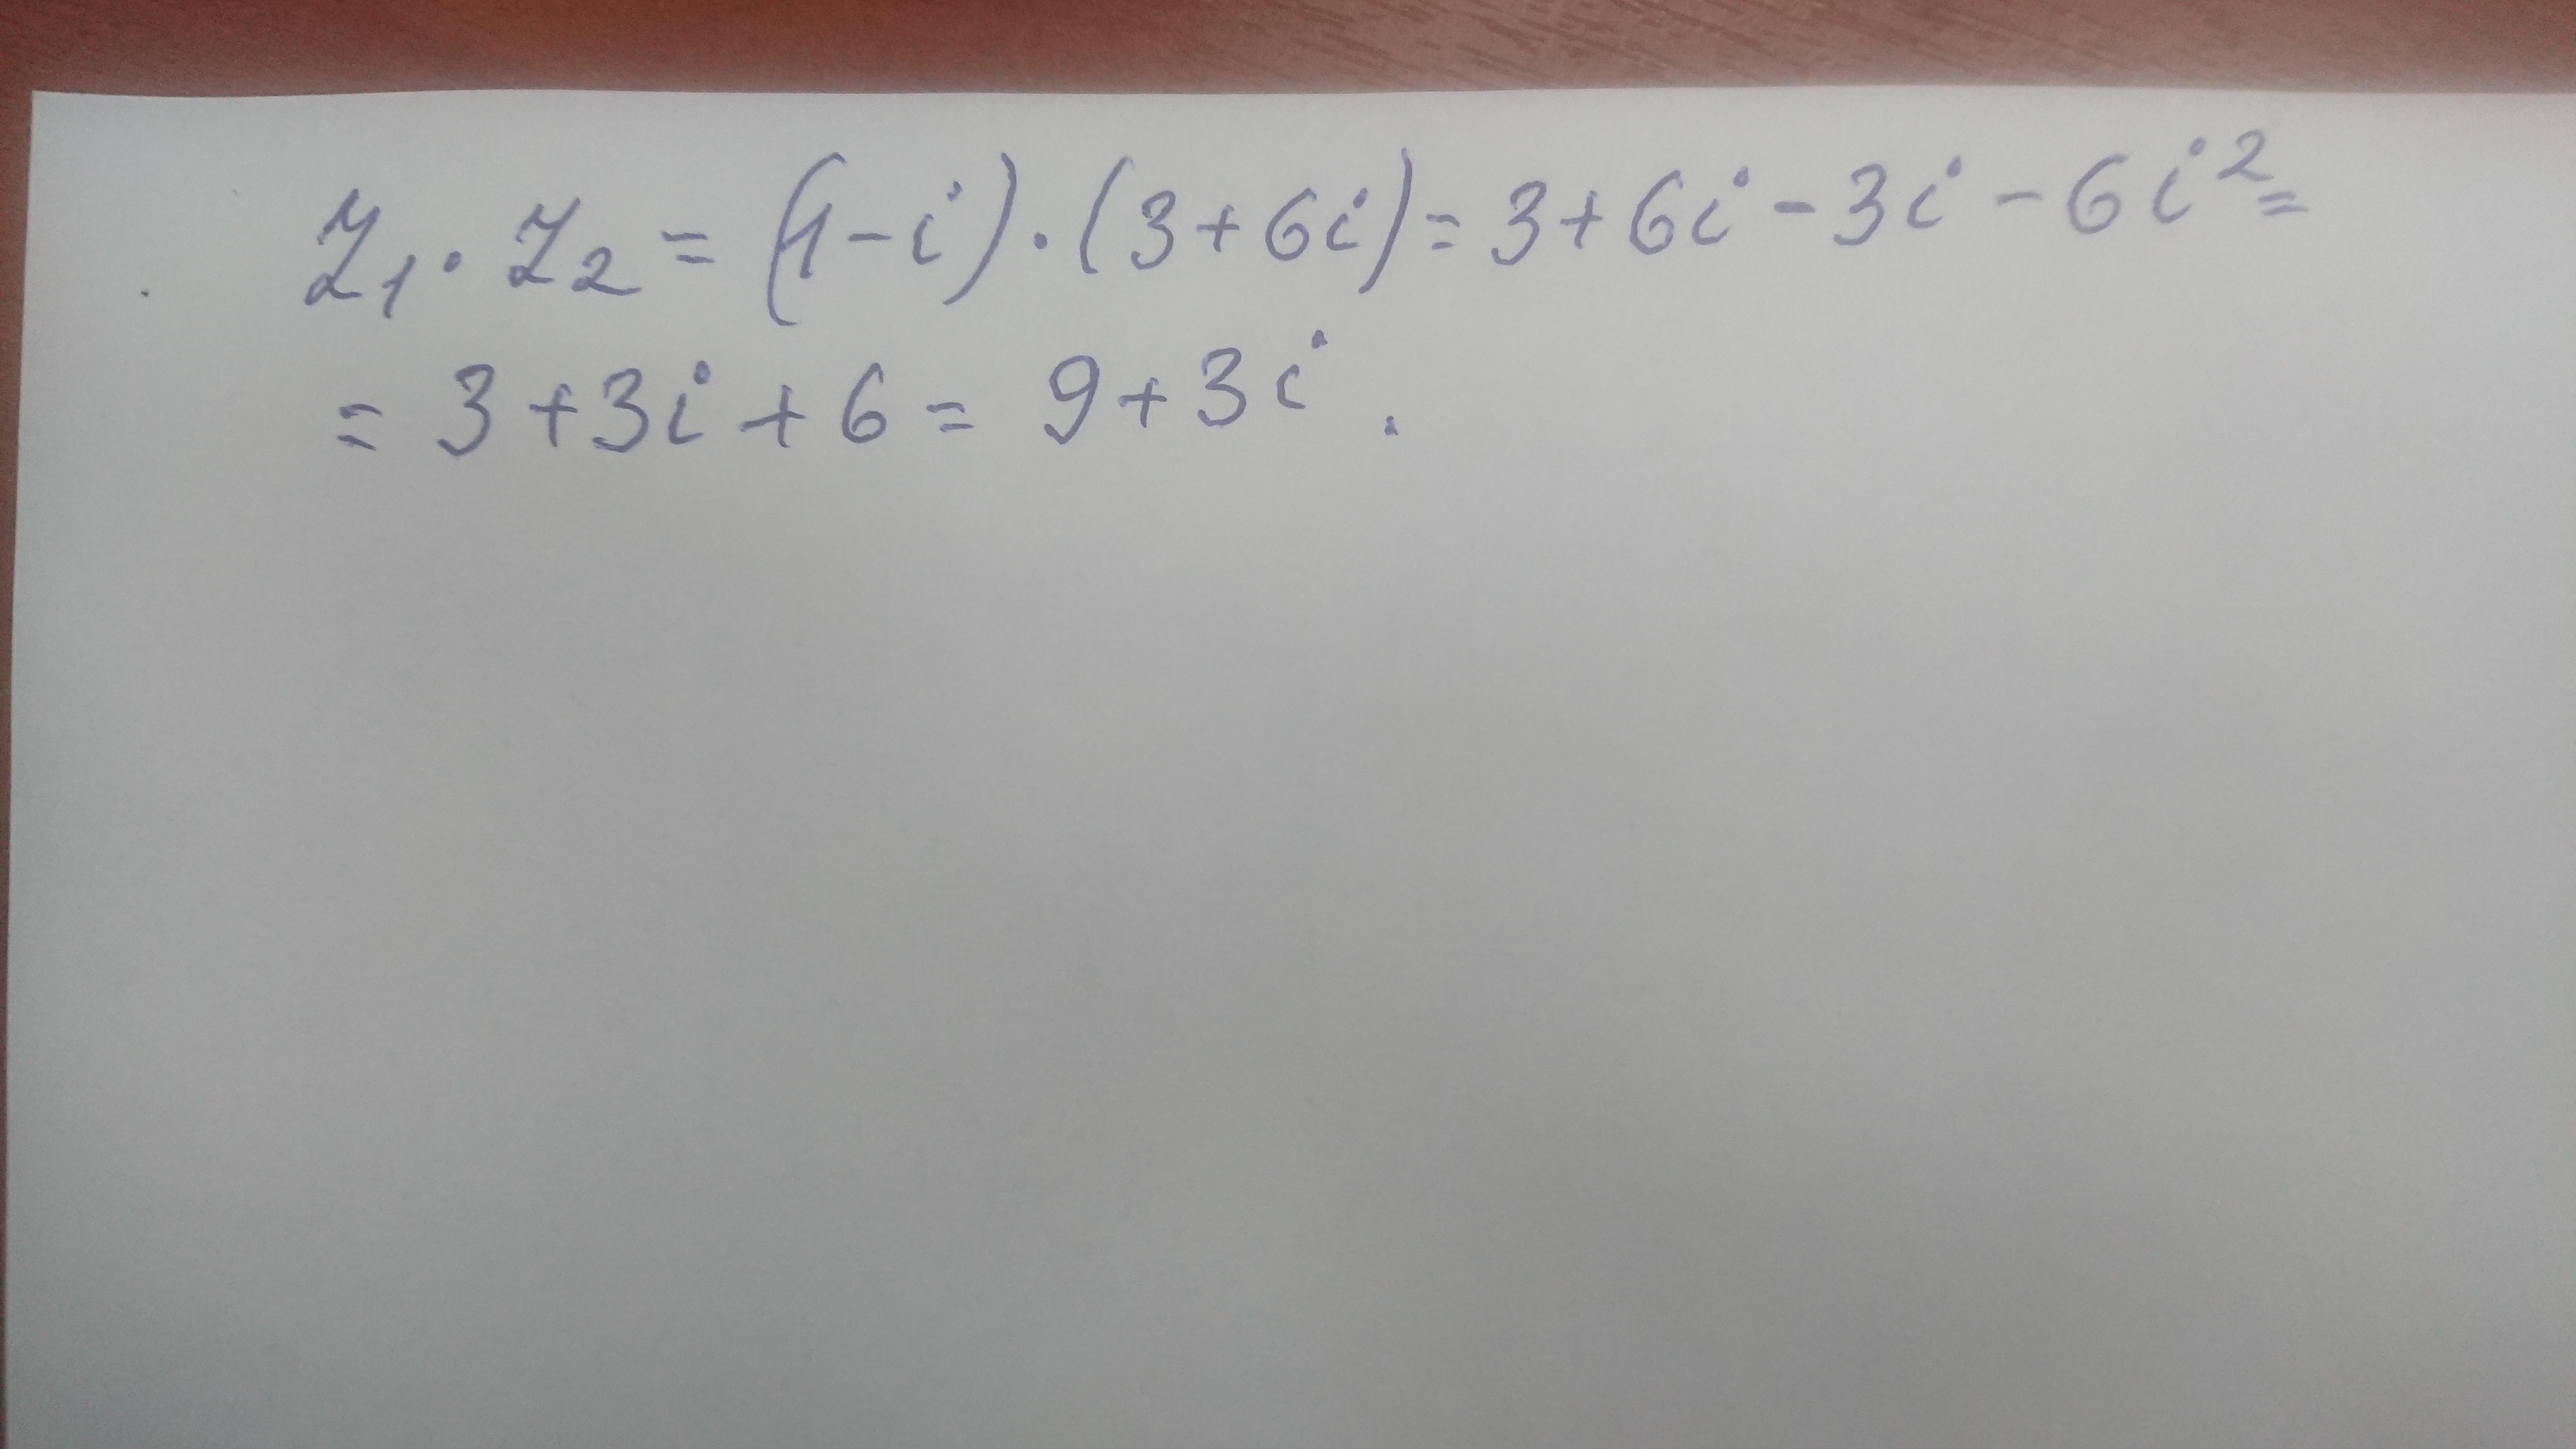 z₁ · z₂ = (1 - i) · (3 + 6i) = 3 + 6i - 3i - 6i² =
= 3 + 3i + 6 = 9 + 3i .